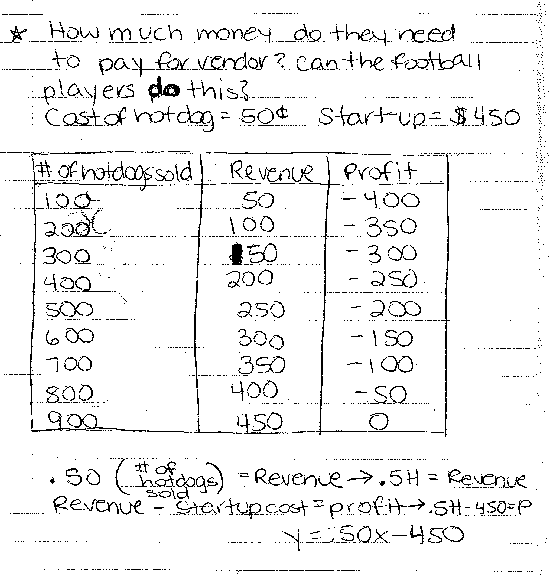 * How much money do they need
to pay for vendor? Can the football
players do this?
Cost of hotdog = 50¢ Start-up = $450
# of hotdogs sold Revenue Profit
100 50 -400
200 100 -350
300 150 -300
400 200 -250
500 250 -200
600 300 -150
700 350 -100
800 400 -50
900 450 0
.50 (# of hotdogs sold) = Revenue → .5H = Revenue
Revenue - Startup cost = profit → .5H - 450 = P
y = .50x - 450